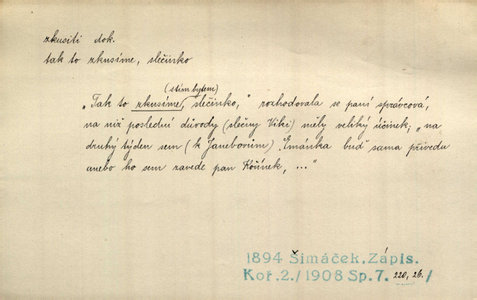 zkusiti dok.
tak to zkusíme, slečinko
(s tím bytem)
„Tak to zkusíme, slečinko," rozhodovala se paní správcová,
na niž poslední důvody (slečny Viki) měly veliký účinek, „na
druhý týden sem (k Janebovům) Emánka buď sama přivedu
anebo ho sem zavede pan Kořínek, ..."
1894 Šimáček. Zápis.
Koř. 2./1908 Sp. 7. 220, 26./